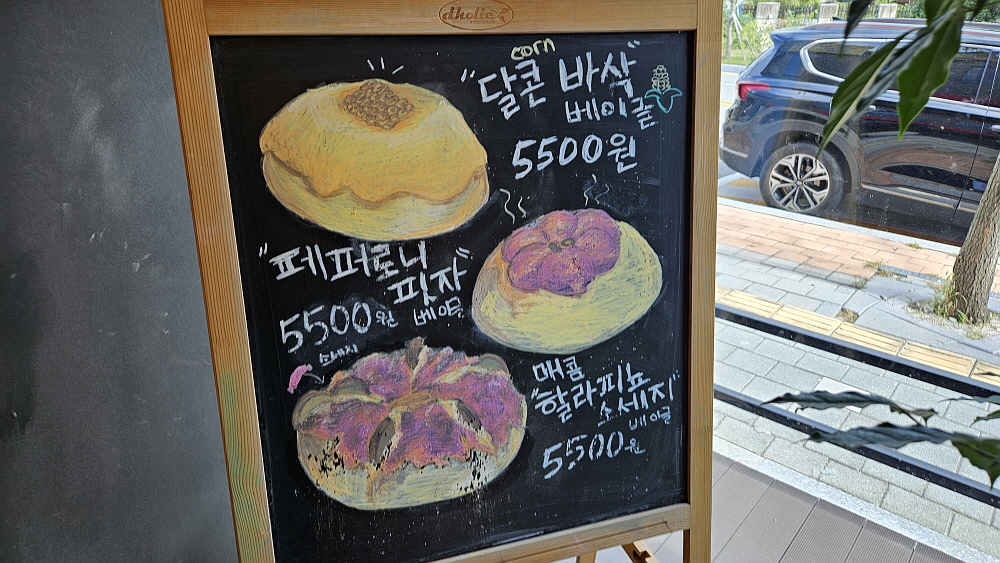 dholic
corn
"달콘 바삭"
베이글
5500원
"페퍼로니
핏자"
5500원 베이글
소세지
매콤
"할라피뇨"
소세지
베이글
5500원